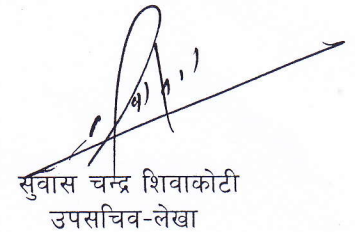 सुवास चन्द्र शिवाकोटी
उपसचिव-लेखा